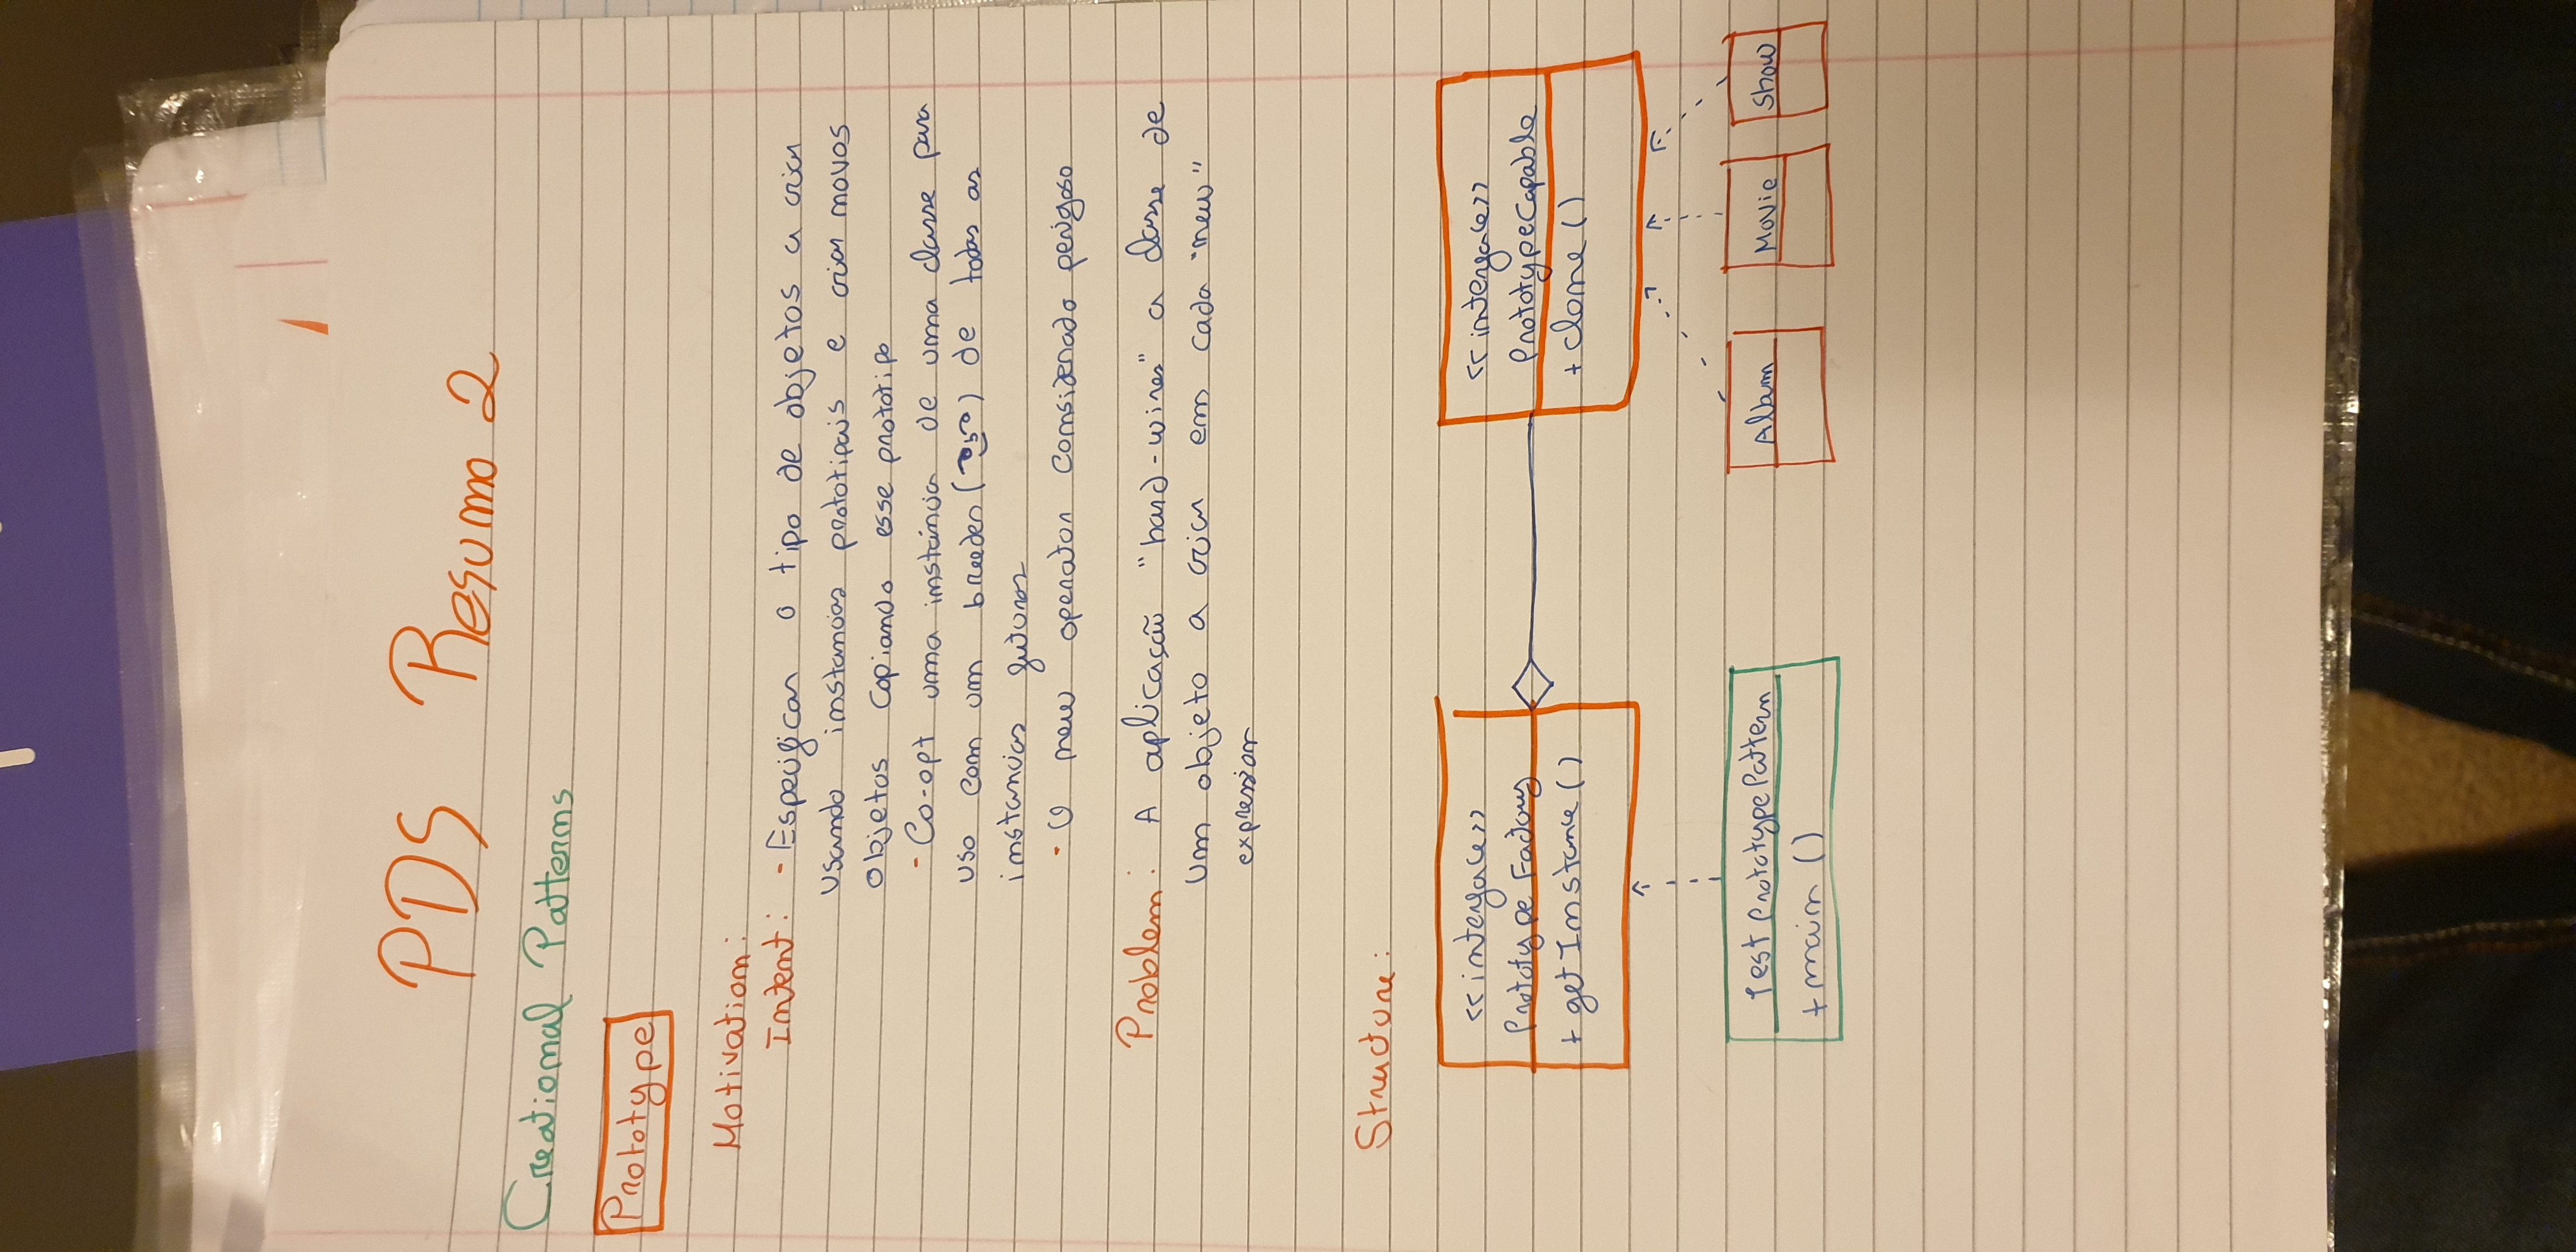 PDS Resumo 2
Creational Patterns
Prototype
Motivation:
Intent: - Especificar o tipo de objetos a criar
usando instancias prototipais e criar novos
objetos copiando esse prototipo
- Co-opt uma instância de uma classe para
uso com um breeder ( ) de todas as
instancias futuras
- O new operator considerado perigoso
Problem: A aplicação "hard-wires" a classe de
um objeto a criar em cada "new"
expression
Structure:
<<interface>> <<interface>>
Prototype Factory PrototypeCapable
+ getInstance () + clone ()
Test Prototype Pattern Album Movie Show
+ main ()